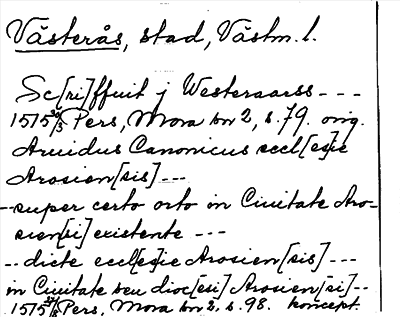 Västerås, stad, Västm. l.
Sc[ri]ffuit j Westeraarss - - -
1515 30/3 Pers, Mora bn 2, s. 79. orig.
Aruidus Canonicus eccl[es]ie
Arosien[sis] - - -
-- super certo orto in Ciuitate Aro-
sien[si] existente - - -
- - dicte eccl[es]ie Arosien[sis] - - -
in Ciuitate seu dioc[esi] Arosien[si] - -
1515 Pers, Mora bn 2, s. 98. koncept.